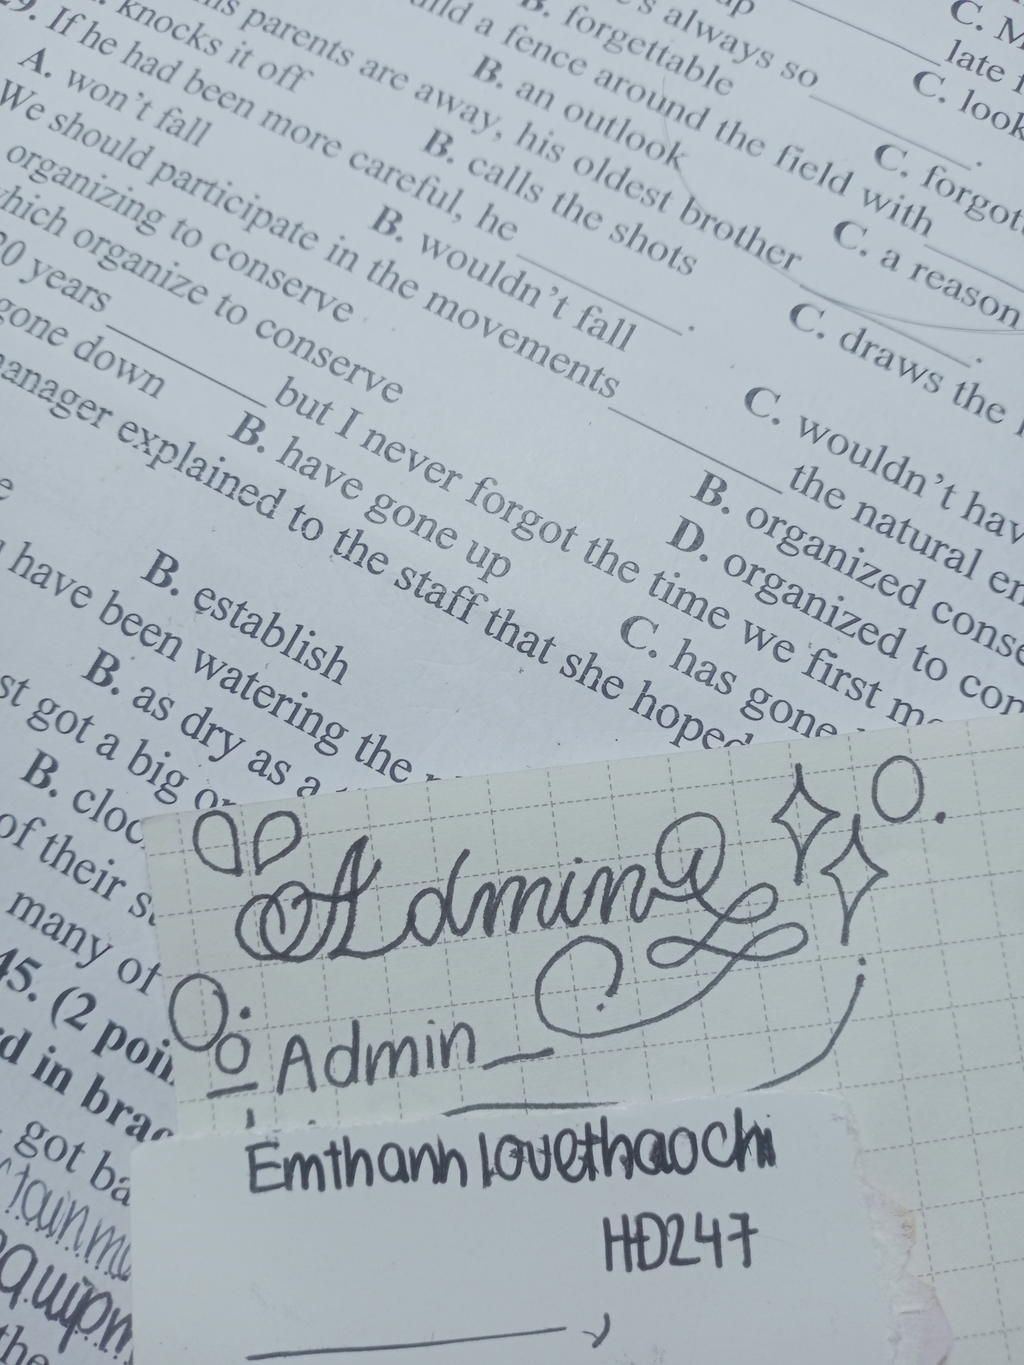 up
C. M
's always so
late f
B. forgettable
C. look
a fence around the field with
C. forgot
B. an outlook
C. a reason
parents are away, his oldest brother
knocks it off
B. calls the shots
C. draws the
29. If he had been more careful, he
A. won't fall
B. wouldn't fall
C. wouldn't hav
We should participate in the movements the natural en
organizing to conserve
B. organized conse
which organize to conserve
D. organized to con
20 years but I never forgot the time we first m
gone down
B. have gone up
C. has gone
manager explained to the staff that she hoped
B. establish
have been watering the
B. as dry as a
st got a big
B. cloc
of their s
many of
45. (2 poin
rd in brac
got ba
the
Admin
Admin_
Emthanhlovethaochi
HD247